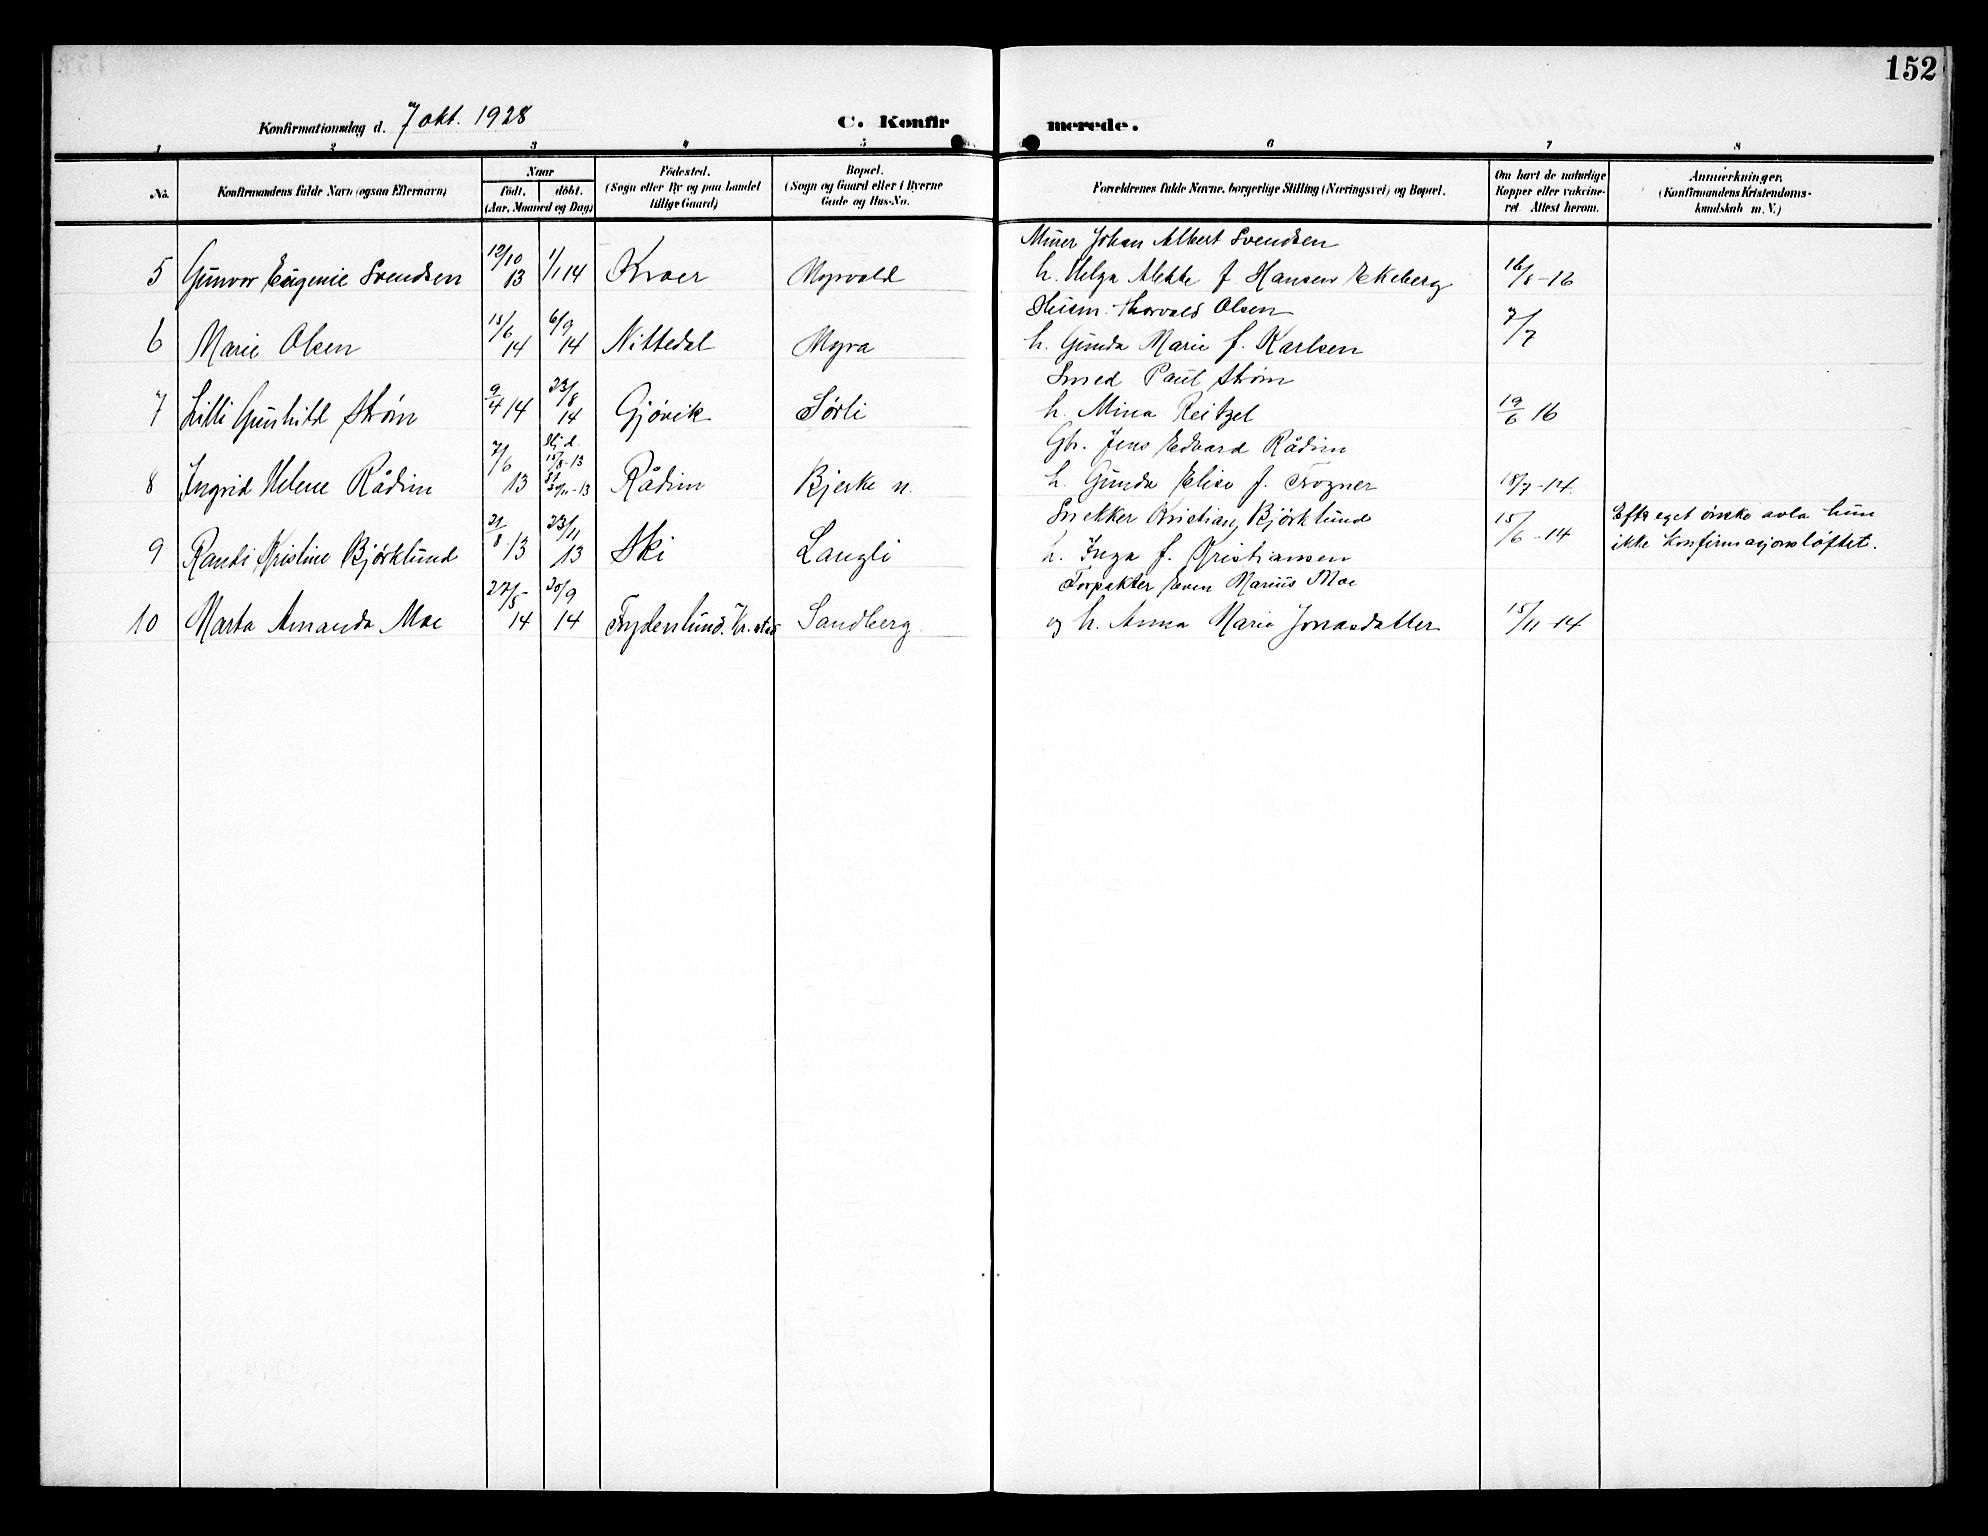 152
Konfirmationsdag d. 7 okt. 1928
C. Konfirmerede.
1 2 3 4 5 6 7 8
No. Konfirmandens fulde Navn (ogsaa Efternavn)
Naar
födt. döbt.
(Aar, Maaned og Dag)
Födested.
(Sogn eller By og paa Landet
tillige Gaard)
Bopæl.
(Sogn og Gaard eller i Byerne
Gade og Hus-No.
Forældrenes fulde Navne, borgerlige Stilling (Næringsvei) og Bopæl.
Om havt de naturlige
Kopper eller vakcine-
ret. Attest herom.
Anmærkninger,
(Konfirmandens Kristendoms-
kundskab m. V.)
Murer Johan Albert Svendsen
5 Gunvor Eugenie Svendsen 12/10 13 1/1 14 Kroer Myrvold h. Helga Alette f. Hansen Ekeberg 16/8-16
Husm. Thorvald Olsen
6 Marie Olsen 15/6 14 6/9 14 Nittedal Myra h. Gunda Marie f. Karlsen 7/7
Smed Paul Strøm
7 Lilli Gunhild Strøm 9/4 14 23/8 14 Gjövik Sörli h. Mina Reitzel 19/6 16
Gbr. Jens Edvard Rådim
8 Ingrid Helene Rådim 7/6 13 Hj.d. 15/8-13 30/11-13 Rådim Bjerke n. h. Gunda Elise f. Frogner 18/7-14.
Snekker Kristian Björklund
9 Randi Kristine Björklund 21/8 13 23/11 13 Ski Langli h. Inga f. Kristiansen 15/6-14 Efter eget önske avla hun
ikke konfirmasjonslöftet.
Forpakter Even Marius Moe
10 Marta Amanda Moe 27/5- 14 20/9 14 Frydenlund. Kr.stad Sandberg og h. Anna Marie Jonasdatter 15/11-14